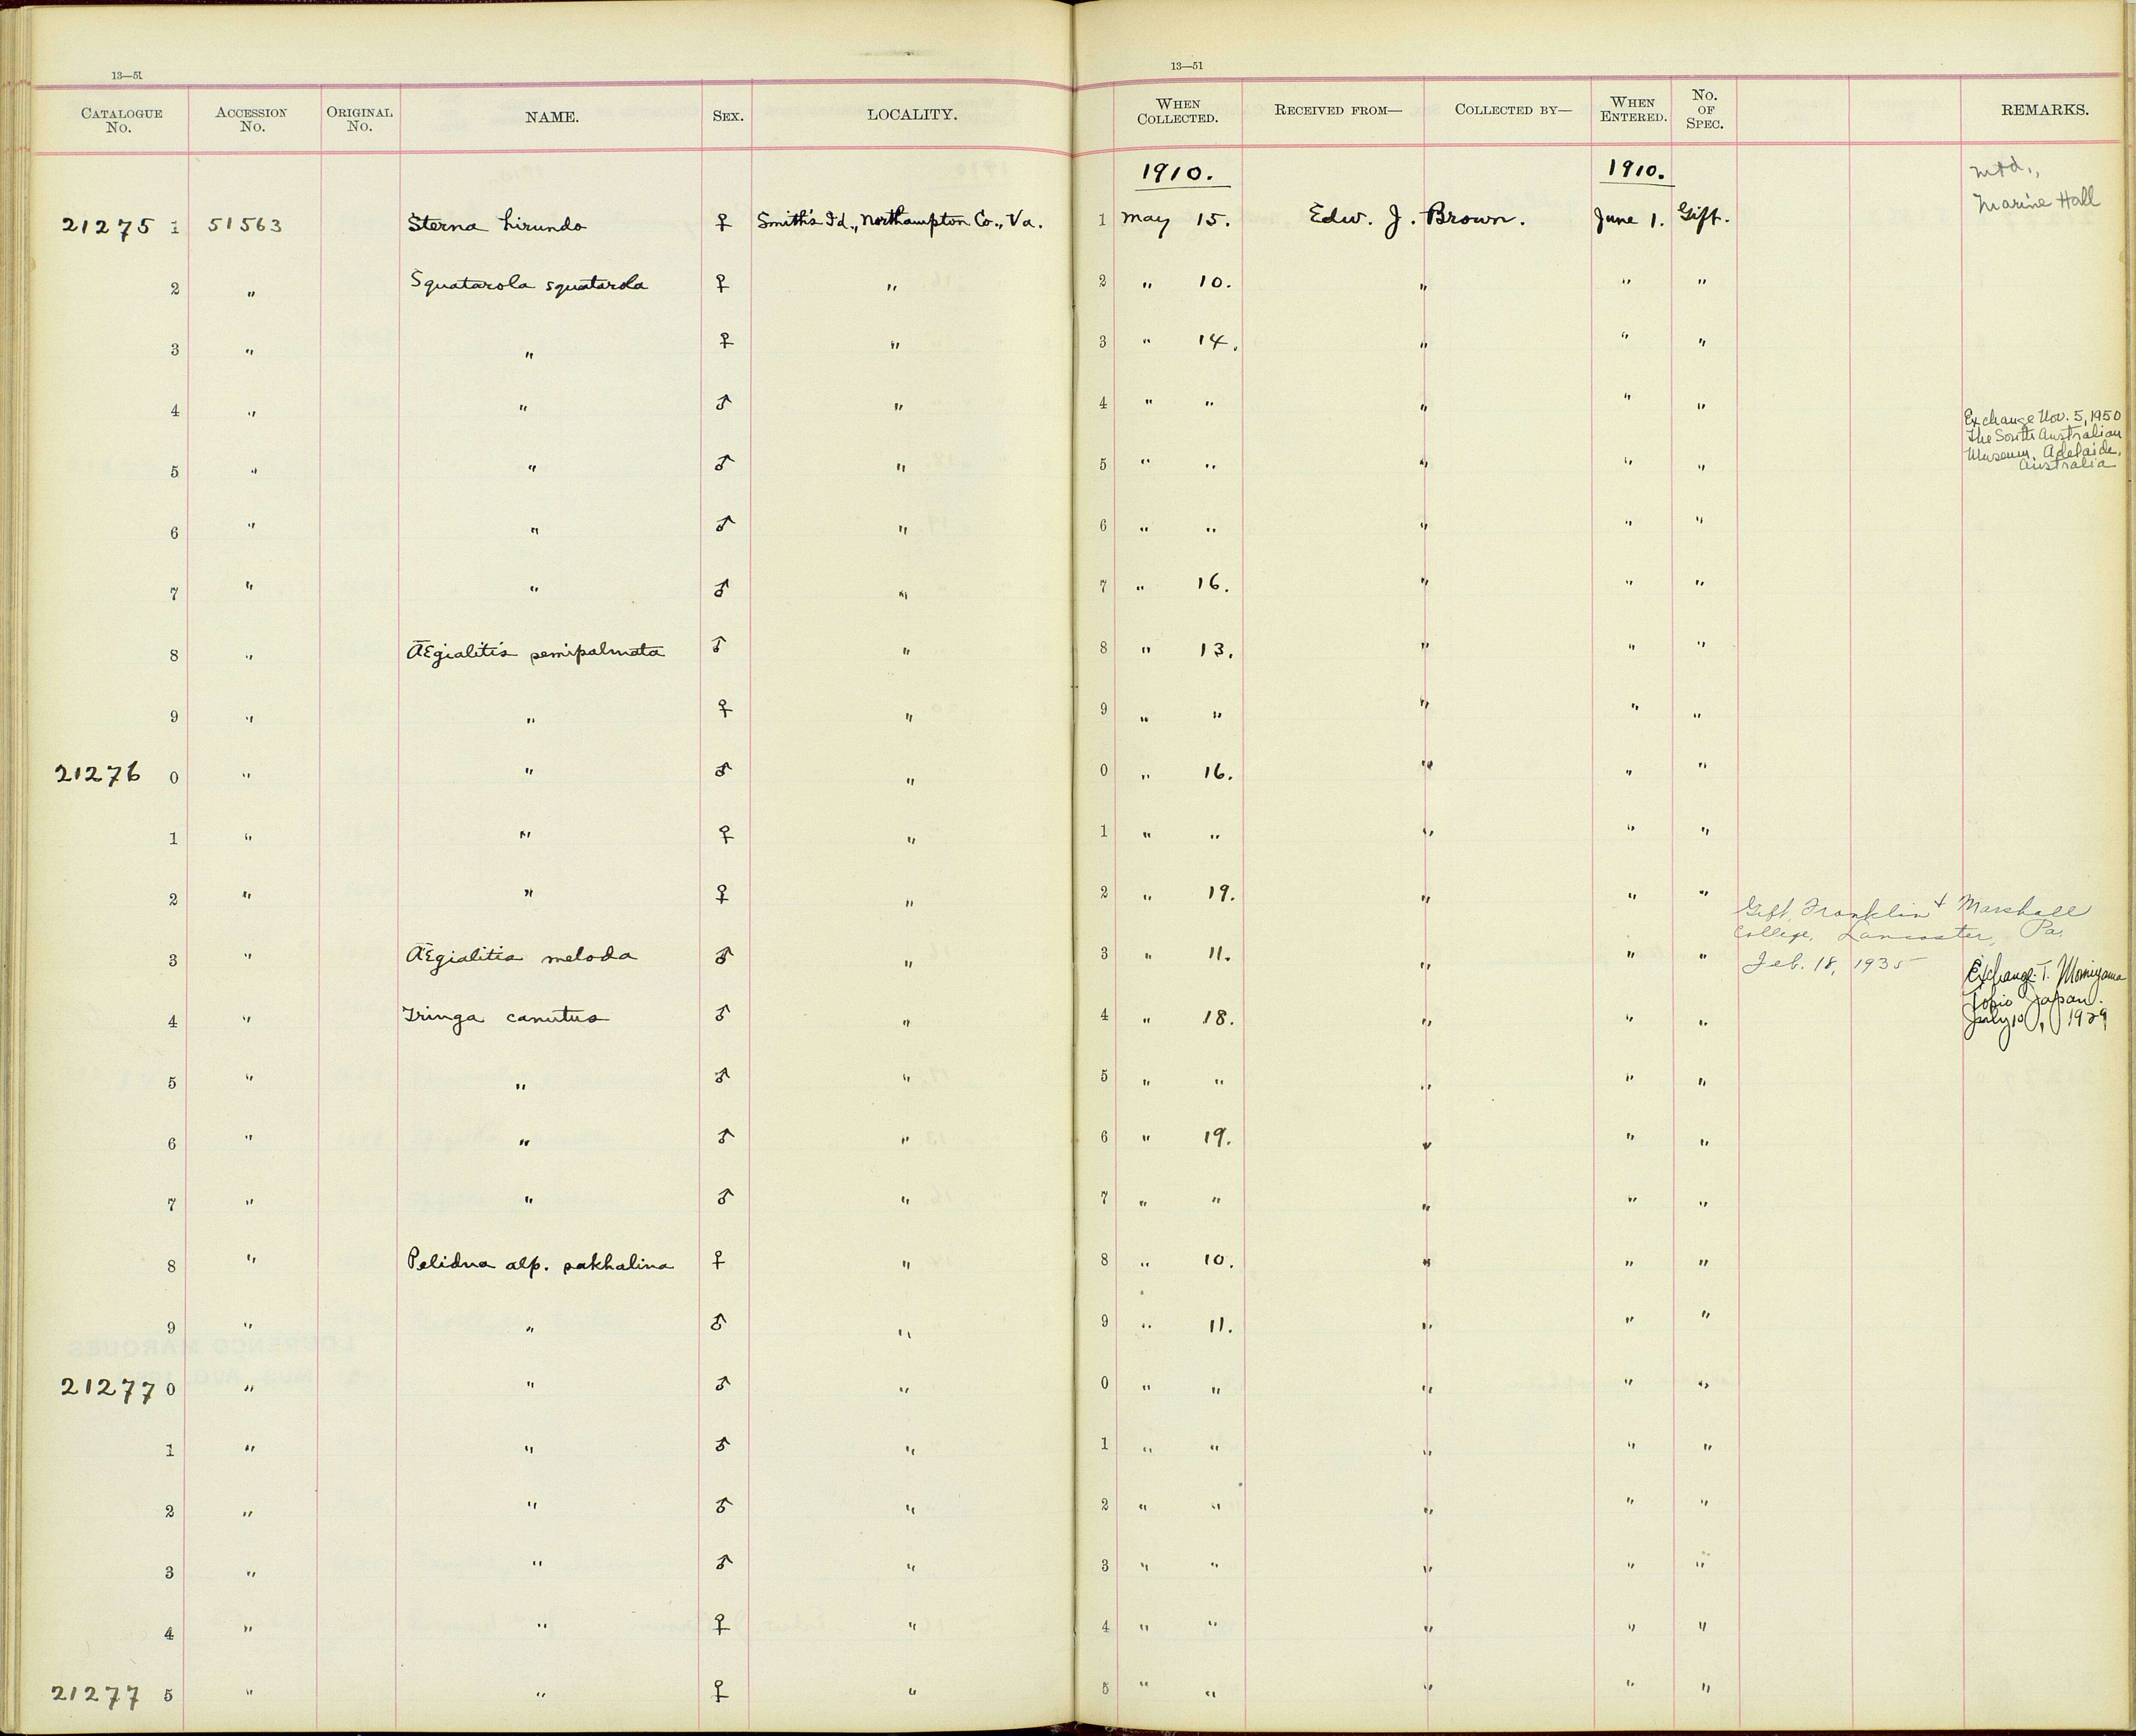 13—51
CATALOGUE No. ACCESSION No. ORIGINAL No. NAME. SEX. LOCALITY.
13—51
WHEN COLLECTED. RECEIVED FROM— COLLECTED BY— WHEN ENTERED. No. OF SPEC. REMARKS.
1910. 1910. mtd.,
Marine Hall
21275 1 51563 Sterna hirundo ♀ Smith's Id., Northampton Co., Va. 1 May 15. Edw. J. Brown. June 1. Gift.
2 " Squatarola squatarola ♀ " 2 " 10. " " "
3 " " ♀ " 3 " 14. " " "
4 " " ♂ " 4 " " " " "
Exchange Nov. 5, 1950
The South Australian
Museum, Adelaide,
Australia
5 " " ♂ " 5 " " " " "
6 " " ♂ " 6 " " " " "
7 " " ♂ " 7 " 16. " " "
8 " Ægialitis semipalmata ♂ " 8 " 13. " " "
9 " " ♀ " 9 " " " " "
21276 0 " " ♂ " 0 " 16. " " "
1 " " ♀ " 1 " " " " "
2 " " ♀ " 2 " 19. " " "
Gift, Franklin + Marshall
College, Lancaster, Pa.
Feb. 18, 1935
3 " Ægialitis meloda ♂ " 3 " 11. " " "
Exchange T. Momiyama
Tokio Japan.
July 10, 1929
4 " Tringa canutus ♂ " 4 " 18. " " "
5 " " ♂ " 5 " " " " "
6 " " ♂ " 6 " 19. " " "
7 " " ♂ " 7 " " " " "
8 " Pelidna alp. sakhalina ♀ " 8 " 10. " " "
9 " " ♂ " 9 " 11. " " "
21277 0 " " ♂ " 0 " " " " "
1 " " ♂ " 1 " " " " "
2 " " ♂ " 2 " " " " "
3 " " ♂ " 3 " " " " "
4 " " ♀ " 4 " " " " "
21277 5 " " ♀ " 5 " " " " "